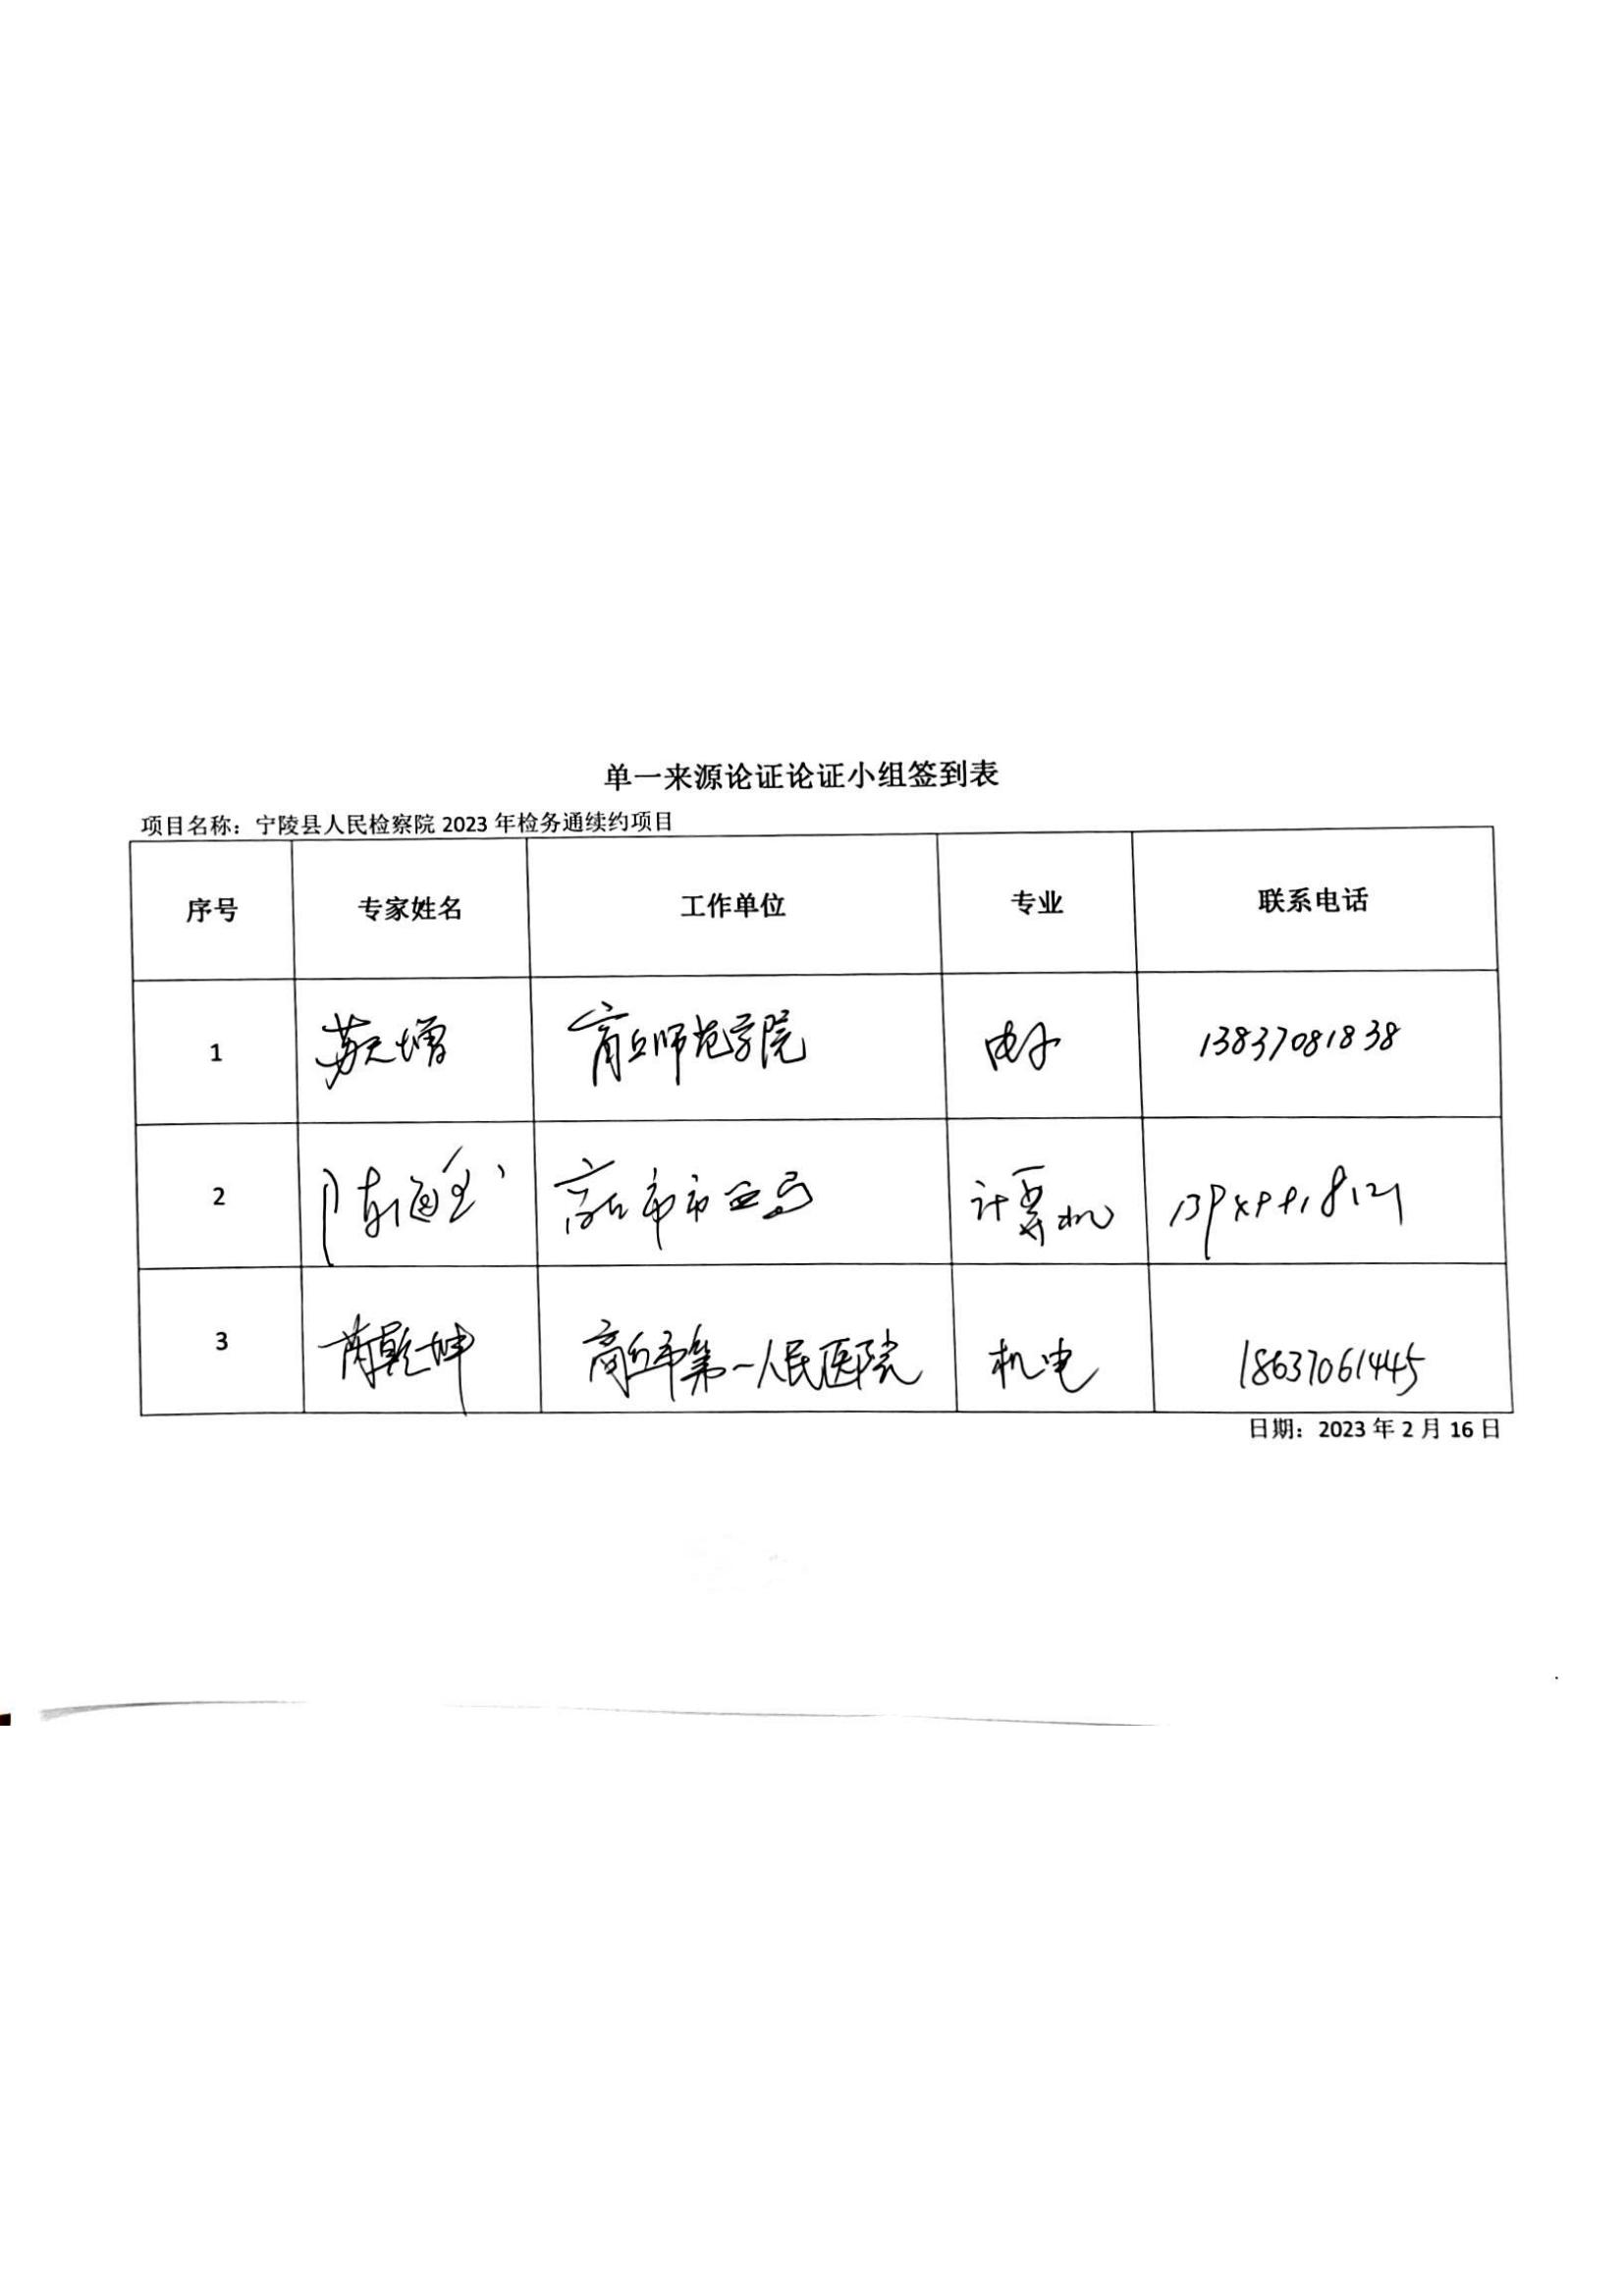 单一来源论证论证小组签到表
项目名称：宁陵县人民检察院 2023 年检务通续约项目
序号 专家姓名 工作单位 专业 联系电话
1 苏天增 商丘师范学院 电子 13837081838
2 陈 商丘市市 局 计算机
3 芮乾坤 商丘市第一人民医院 机电 18637061445
日期：2023 年 2 月 16 日